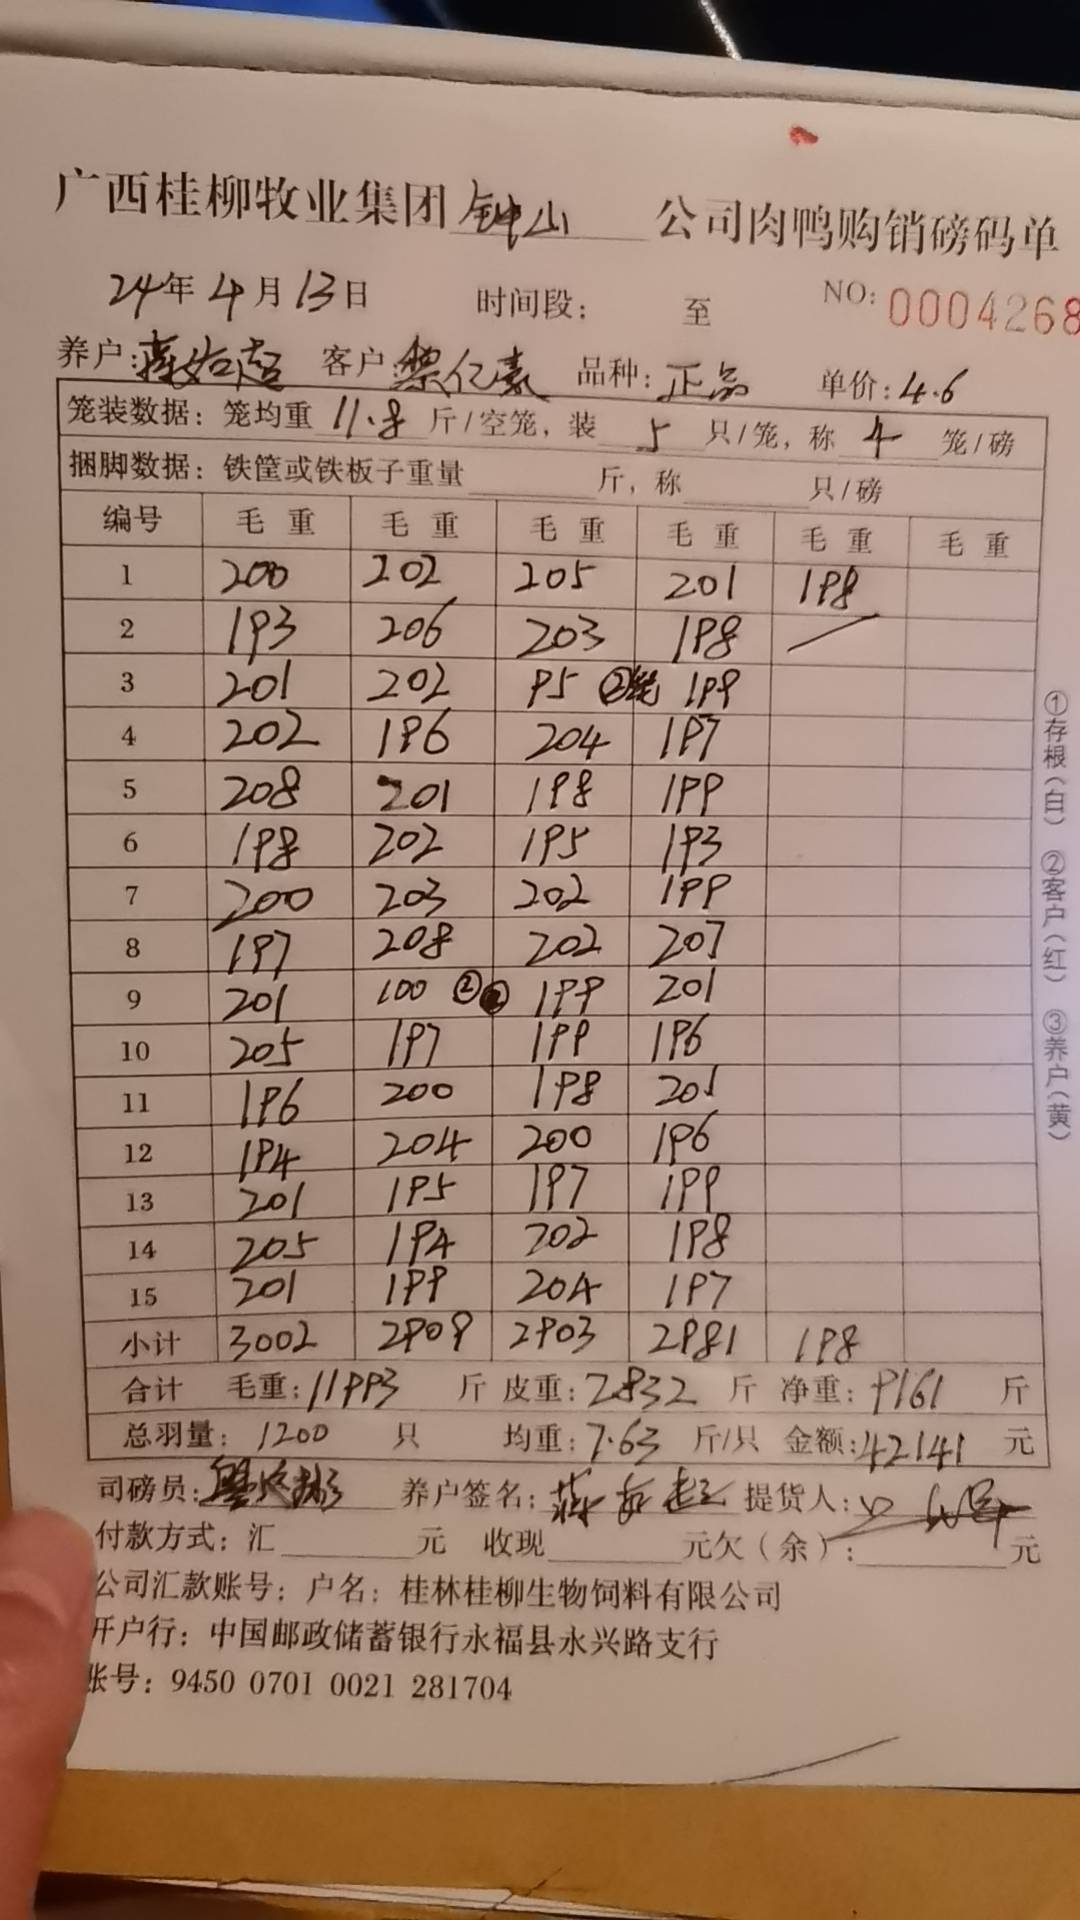 广西桂柳牧业集团 钟山 公司肉鸭购销磅码单
24年4月13日 时间段: 至 NO: 0004268
养户: 客户: 黎亿豪 品种: 正品 单价: 4.6
笼装数据: 笼均重 11.8 斤/空笼, 装 5 只/笼, 称 4 笼/磅
捆脚数据: 铁筐或铁板子重量 斤, 称 只/磅
编号 毛重 毛重 毛重 毛重 毛重 毛重
1 200 202 205 201 198
2 193 206 203 198 /
3 201 202 95 ②笼 199
4 202 196 204 197
5 208 201 198 199
6 198 202 195 193
7 200 203 202 199
8 197 208 202 207
9 201 100 ② 199 201
10 205 197 199 196
11 196 200 198 201
12 194 204 200 196
13 201 195 197 199
14 205 194 202 198
15 201 199 204 197
小计 3002 2909 2903 2981 198
合计 毛重: 11993 斤 皮重: 2832 斤 净重: 9161 斤
总羽量: 1200 只 均重: 7.63 斤/只 金额: 42141 元
司磅员: 养户签名: 提货人:
付款方式: 汇 元 收现 元欠(余): 元
公司汇款账号: 户名: 桂林桂柳生物饲料有限公司
开户行: 中国邮政储蓄银行永福县永兴路支行
账号: 9450 0701 0021 281704
①存根(白) ②客户(红) ③养户(黄)